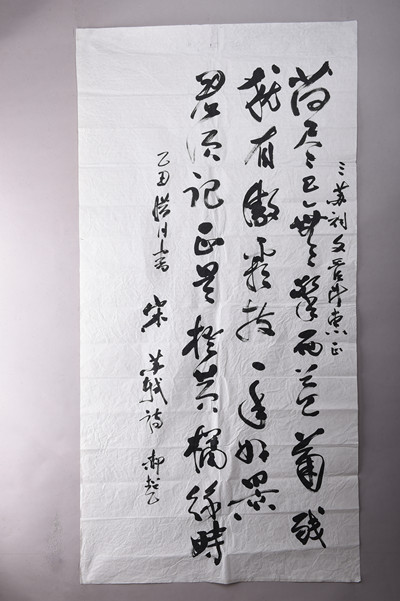 三苏祠文管所 正
荷尽已無擎雨盖菊残
犹有傲霜枝一年好景
君须记正是橙黄橘绿時
宋苏轼诗
乙丑 书